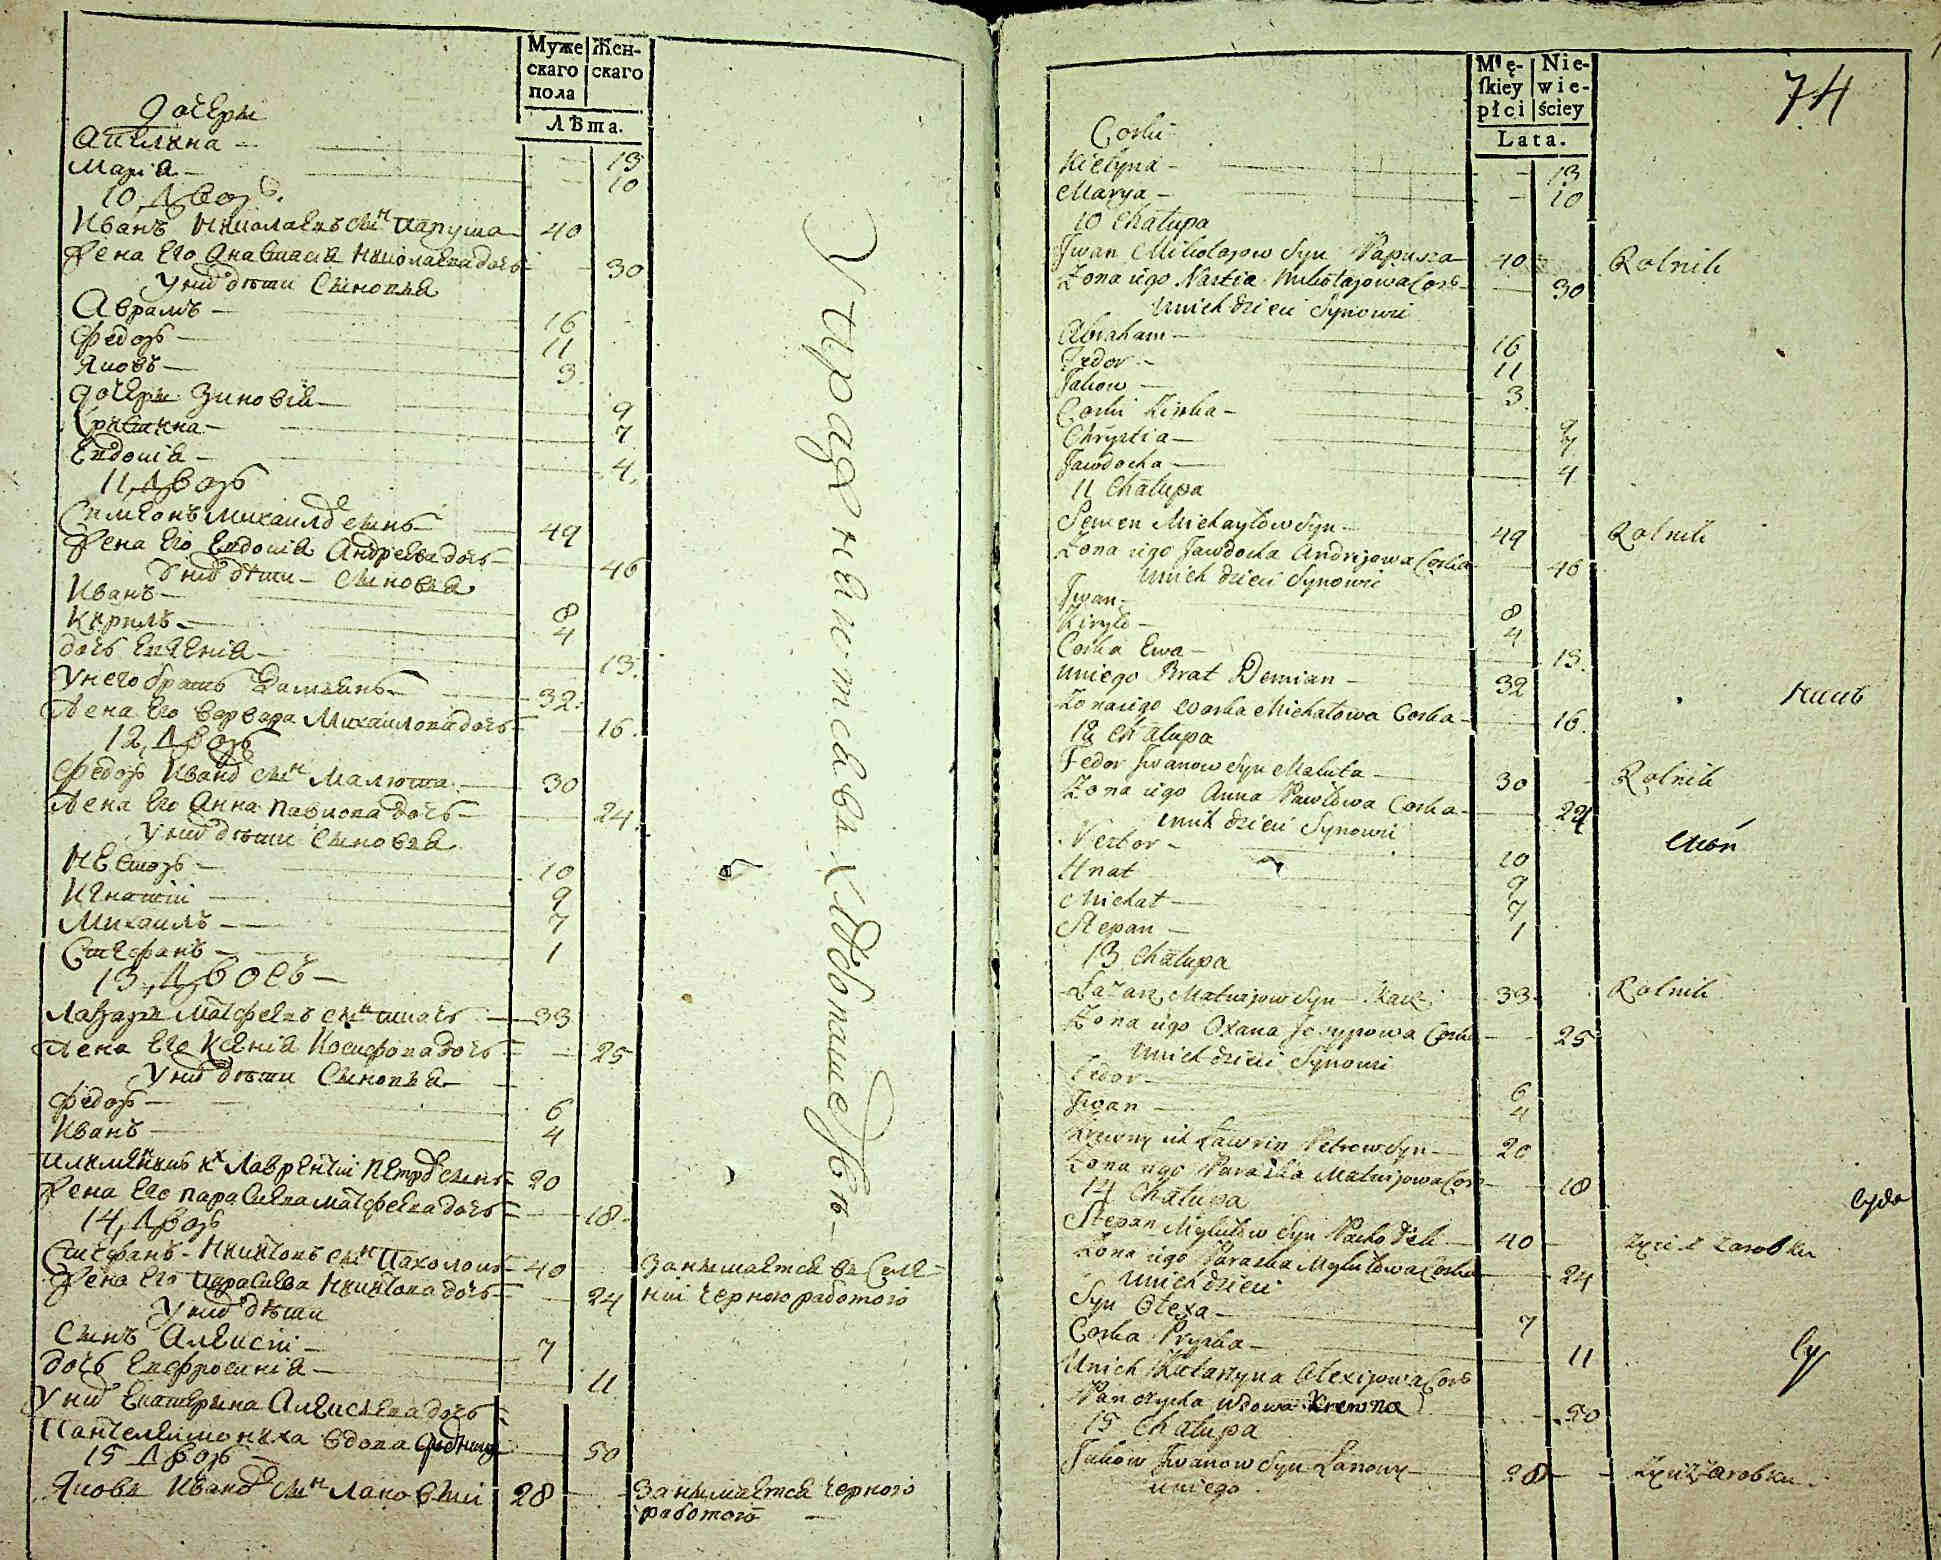 Муже
скаго
пола
Жен-
скаго
Лѣта.
дочери
Апилина — 13
Марія — 10
10 Дворъ.
Иванъ Николаевъ сынъ Папуша 40
Жена Его Анастасія Николаева дочь 30
У них дѣти Сыновья
Аврамъ — 16
Федоръ — 11
Яковъ — 3
дочери Зиновія — 9
Християна — 7
Евдокія — 4
11 Дворъ
Симеонъ Михайлов сынъ 49
Жена Его Евдокія Андреева дочь 46
У них дѣти — Сыновья
Иванъ — 8
Кирилъ — 4
дочь Евгенія — 13
У него братъ Дамианъ 32
Жена Его Варвара Михайлова дочь 16
12 Дворъ
Федоръ Иванов сынъ Малюта 30
Жена Его Анна Павлова дочь 24
У них дѣти Сыновья
Несторъ — 10
Игнатій — 9
Михаилъ — 7
Стефанъ — 1
13 Дворъ —
Лазарь Матфеевъ сынъ ткачь 33
Жена Его Ксенія Иосифова дочь 25
У них дѣти Сыновья
Федоръ — 6
Иванъ — 4
племенникъ их Лаврентій Петров сынъ 20
Жена Его Параскева Матфеева дочь 18
14 Дворъ
Стефанъ Никитовъ сынъ Пахолокъ 40 Занимается въ Селе-
Жена Его Параскева Никитова дочь 24 ніи черною работою
У них дѣти
Сынъ Алексій — 7
дочь Евфросинія — 11
У них Екатерина Алексеева дочь
Пантелимониха вдова 50
15 Дворъ
Яковъ Иванов сынъ Лановый 28 Занимается черною
работою —
Упражняются въ Хлебопашествѣ —
Męs-
skiey
płci
Nie-
wie-
ściey
Lata.
74
Corki
Kielyna — 13
Marya — 10
10 Chałupa
Jwan Mikołajow Syn Papusza 40 Rolnik
Zona iego Nastia Mikołajowa Cork 30
Unich dzieci Synowi
Abraham — 16
Fedor — 11
Jakow — 3
Corki Zinka — 9
Chrystia — 7
Jawdocha — 4
11 Chałupa
Semen Michayłow Syn 49 Rolnik
Zona iego Jawdocha Andrijowa Corka 46
Unich dzieci Synowi
Jwan — 8
Kiryło — 4
Corka Ewa — 13
Uniego Brat Demian — 32
Zona iego Warka Michałowa Corka 16
12 Chałupa
Fedor Jwanow Syn Maluta 30 Rolnik
Zona iego Anna Pawłowa Corka 24
Unich dzieci Synowi
Nestor — 10
Hnat 9
Michał — 7
Stepan — 1
13 Chałupa
Łazarz Matwijow Syn Tkacz 33 Rolnik
Zona iego Oxana Josypowa Corka 25
Unich dzieci Synowi
Fedor — 6
Jwan — 4
Krewny ich Ławrin Petrow Syn 20
Zona iego Paraska Matwijowa Cor 18
14 Chałupa
Stepan Mykitow Syn Pachołek 40 Zyie z Zarobku
Zona iego Paraska Mykitowa Corka 24
Unich dzieci
Syn Olexa — 7
Corka Pryska — 11
Unich Katarzyna Olexijowa Cork
Panczycha wdowa Krewna 50
15 Chałupa
Jakow Jwanow Syn Łanowy 28 Zyie z Zarobku
uniego